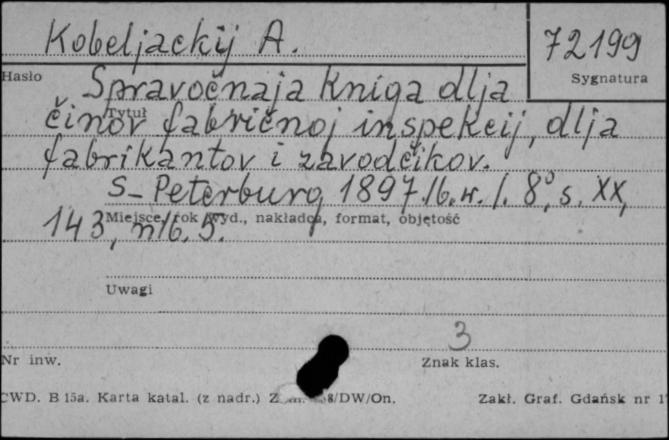 Kobeljackij A.
72199
Hasło
Sygnatura
Spravočnaja kniga dlja
Tytuł
činov fabričnoj inspekcij, dlja
fabrikantov i zavodčikov.
S-Peterburg 1897. /b.w./. 8°, s. XX,
Miejsce, rok wyd., nakładca, format, objętość
143, nlb. 5.
Uwagi
3
Nr inw.
Znak klas.
CWD. B 15a. Karta katal. (z nadr.) 8/DW/On.
Zakł. Graf. Gdańsk nr